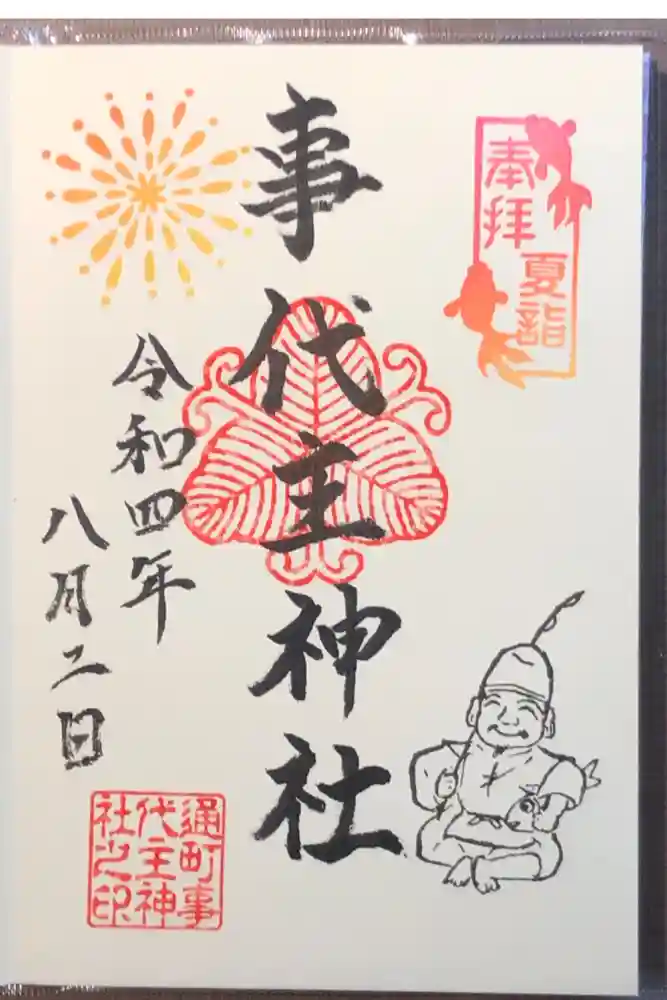 奉拝
夏詣
事代主神社
令和四年
八月二日
通町事
代主神
社之印